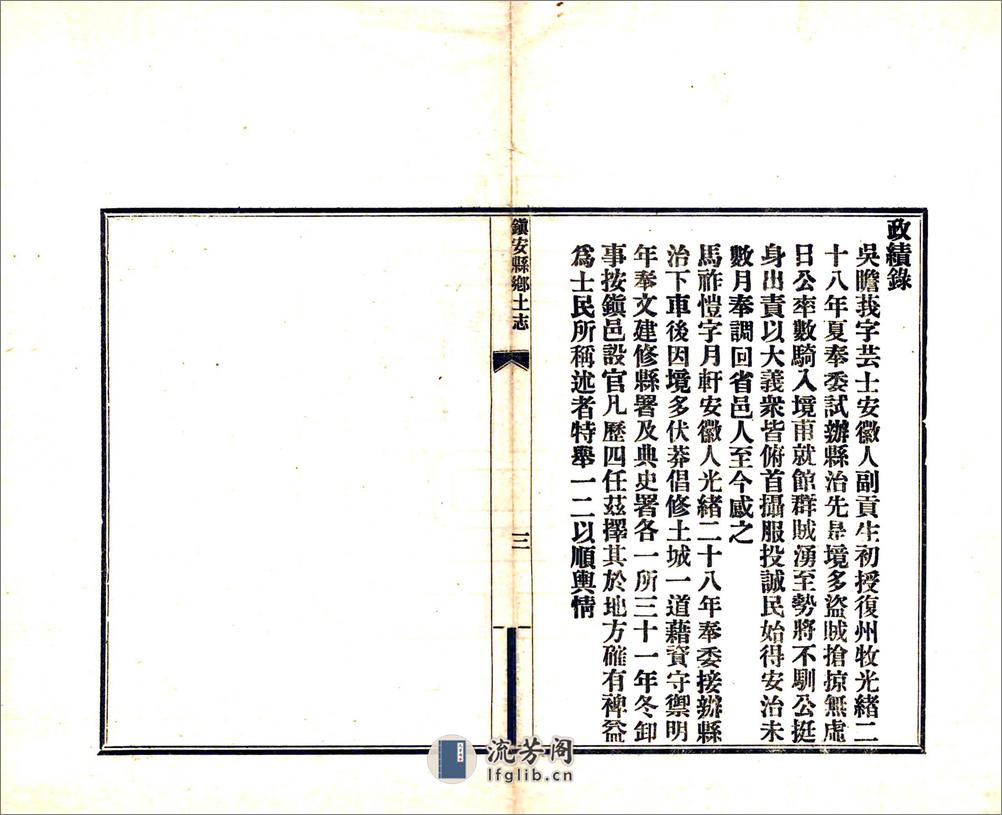 政績錄
吳瞻莪字芸士安徽人副貢生初授復州牧光緒二
十八年夏奉委試辦縣治先是境多盜賊搶掠無虛
日公率數騎入境甫就館群賊湧至勢將不馴公挺
身出責以大義衆皆俯首攝服投誠民始得安治未
數月奉調回省邑人至今感之
馬祚愷字月軒安徽人光緒二十八年奉委接辦縣
治下車後因境多伏莽倡修土城一道藉資守禦明
年奉文建修縣署及典史署各一所三十一年冬卸
事按鎭邑設官凡歷四任茲擇其於地方確有裨益
爲士民所稱述者特舉一二以順輿情
鎭安縣鄉土志
三
流芳阁
lfglib.cn